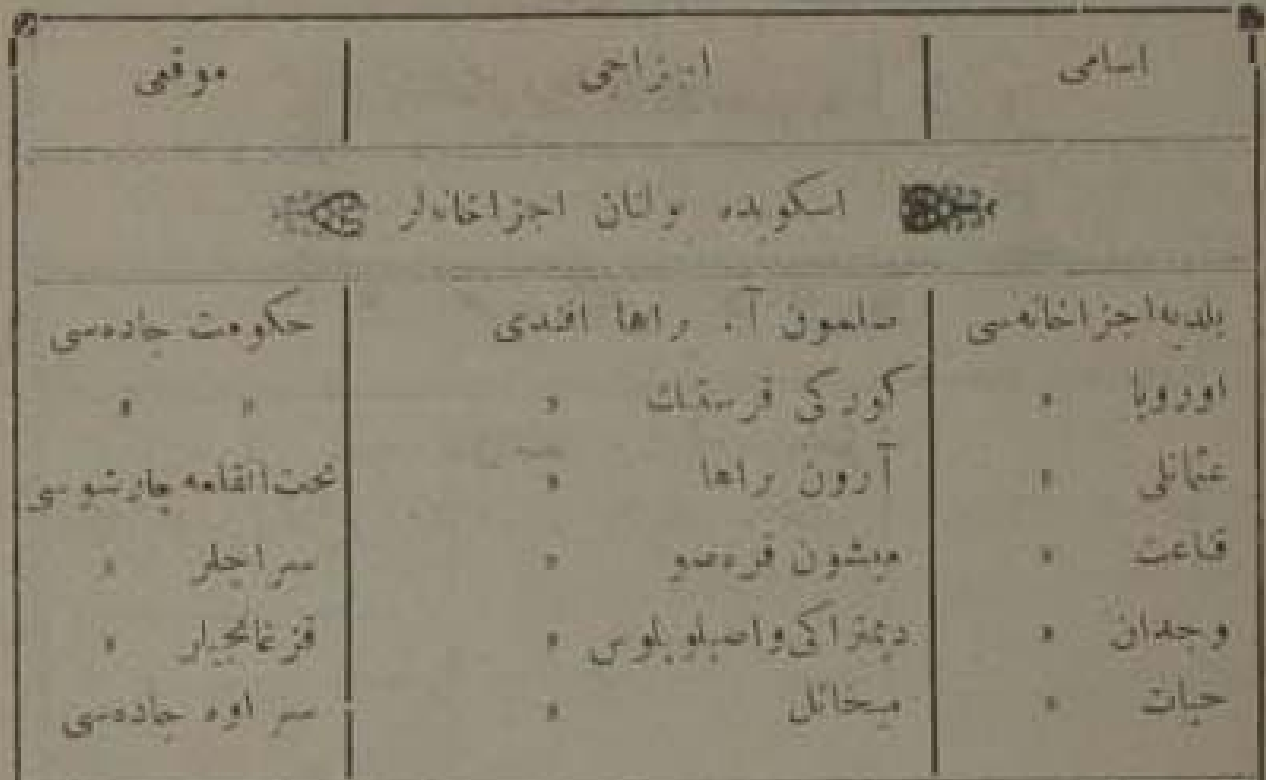 اسامی اجزاجی موقعی
اسکوبده بولنان اجزاخانه‌لر
بلدیه اجزاخانه‌سی سلمون آ. براها افندی حکومت جاده‌سی
اوروپا » کورکی فرستیات » » »
عثمانلی » آرون براها » تحت القلعه چارشوسی
قناعت » میشون قره‌صو » سراجلر »
وجدان » دیمتراکی واصیلوپلوس » قزغانجیلر »
حیات » میخائل » سراوه جاده‌سی